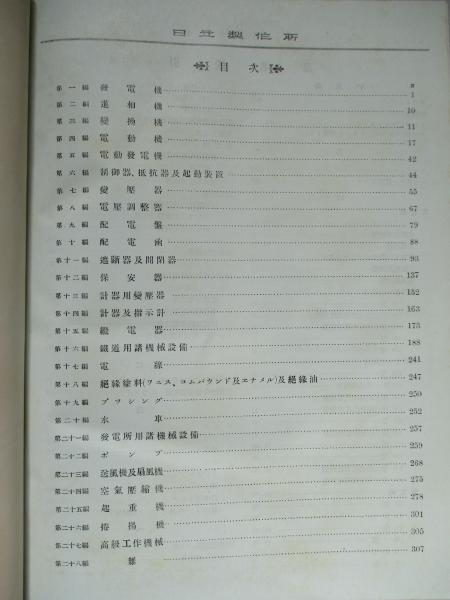 日立製作所
目次
頁
第一編 發電機 1
第二編 進相機 10
第三編 變換機 11
第四編 電動機 17
第五編 電動發電機 42
第六編 制御器、抵抗器及起動裝置 44
第七編 變壓器 55
第八編 電壓調整器 67
第九編 配電盤 79
第十編 配電函 88
第十一編 遮斷器及開閉器 93
第十二編 保安器 137
第十三編 計器用變壓器 152
第十四編 計器及指示計 163
第十五編 繼電器 173
第十六編 鐵道用諸機械設備 188
第十七編 電線 241
第十八編 絕緣塗料(ワニス、コムパウンド及エナメル)及絕緣油 247
第十九編 ブツシング 250
第二十編 水車 252
第二十一編 發電所用諸機械設備 257
第二十二編 ポンプ 259
第二十三編 送風機及扇風機 268
第二十四編 空氣壓縮機 275
第二十五編 起重機 278
第二十六編 捲揚機 301
第二十七編 高級工作機械 305
第二十八編 雜 307